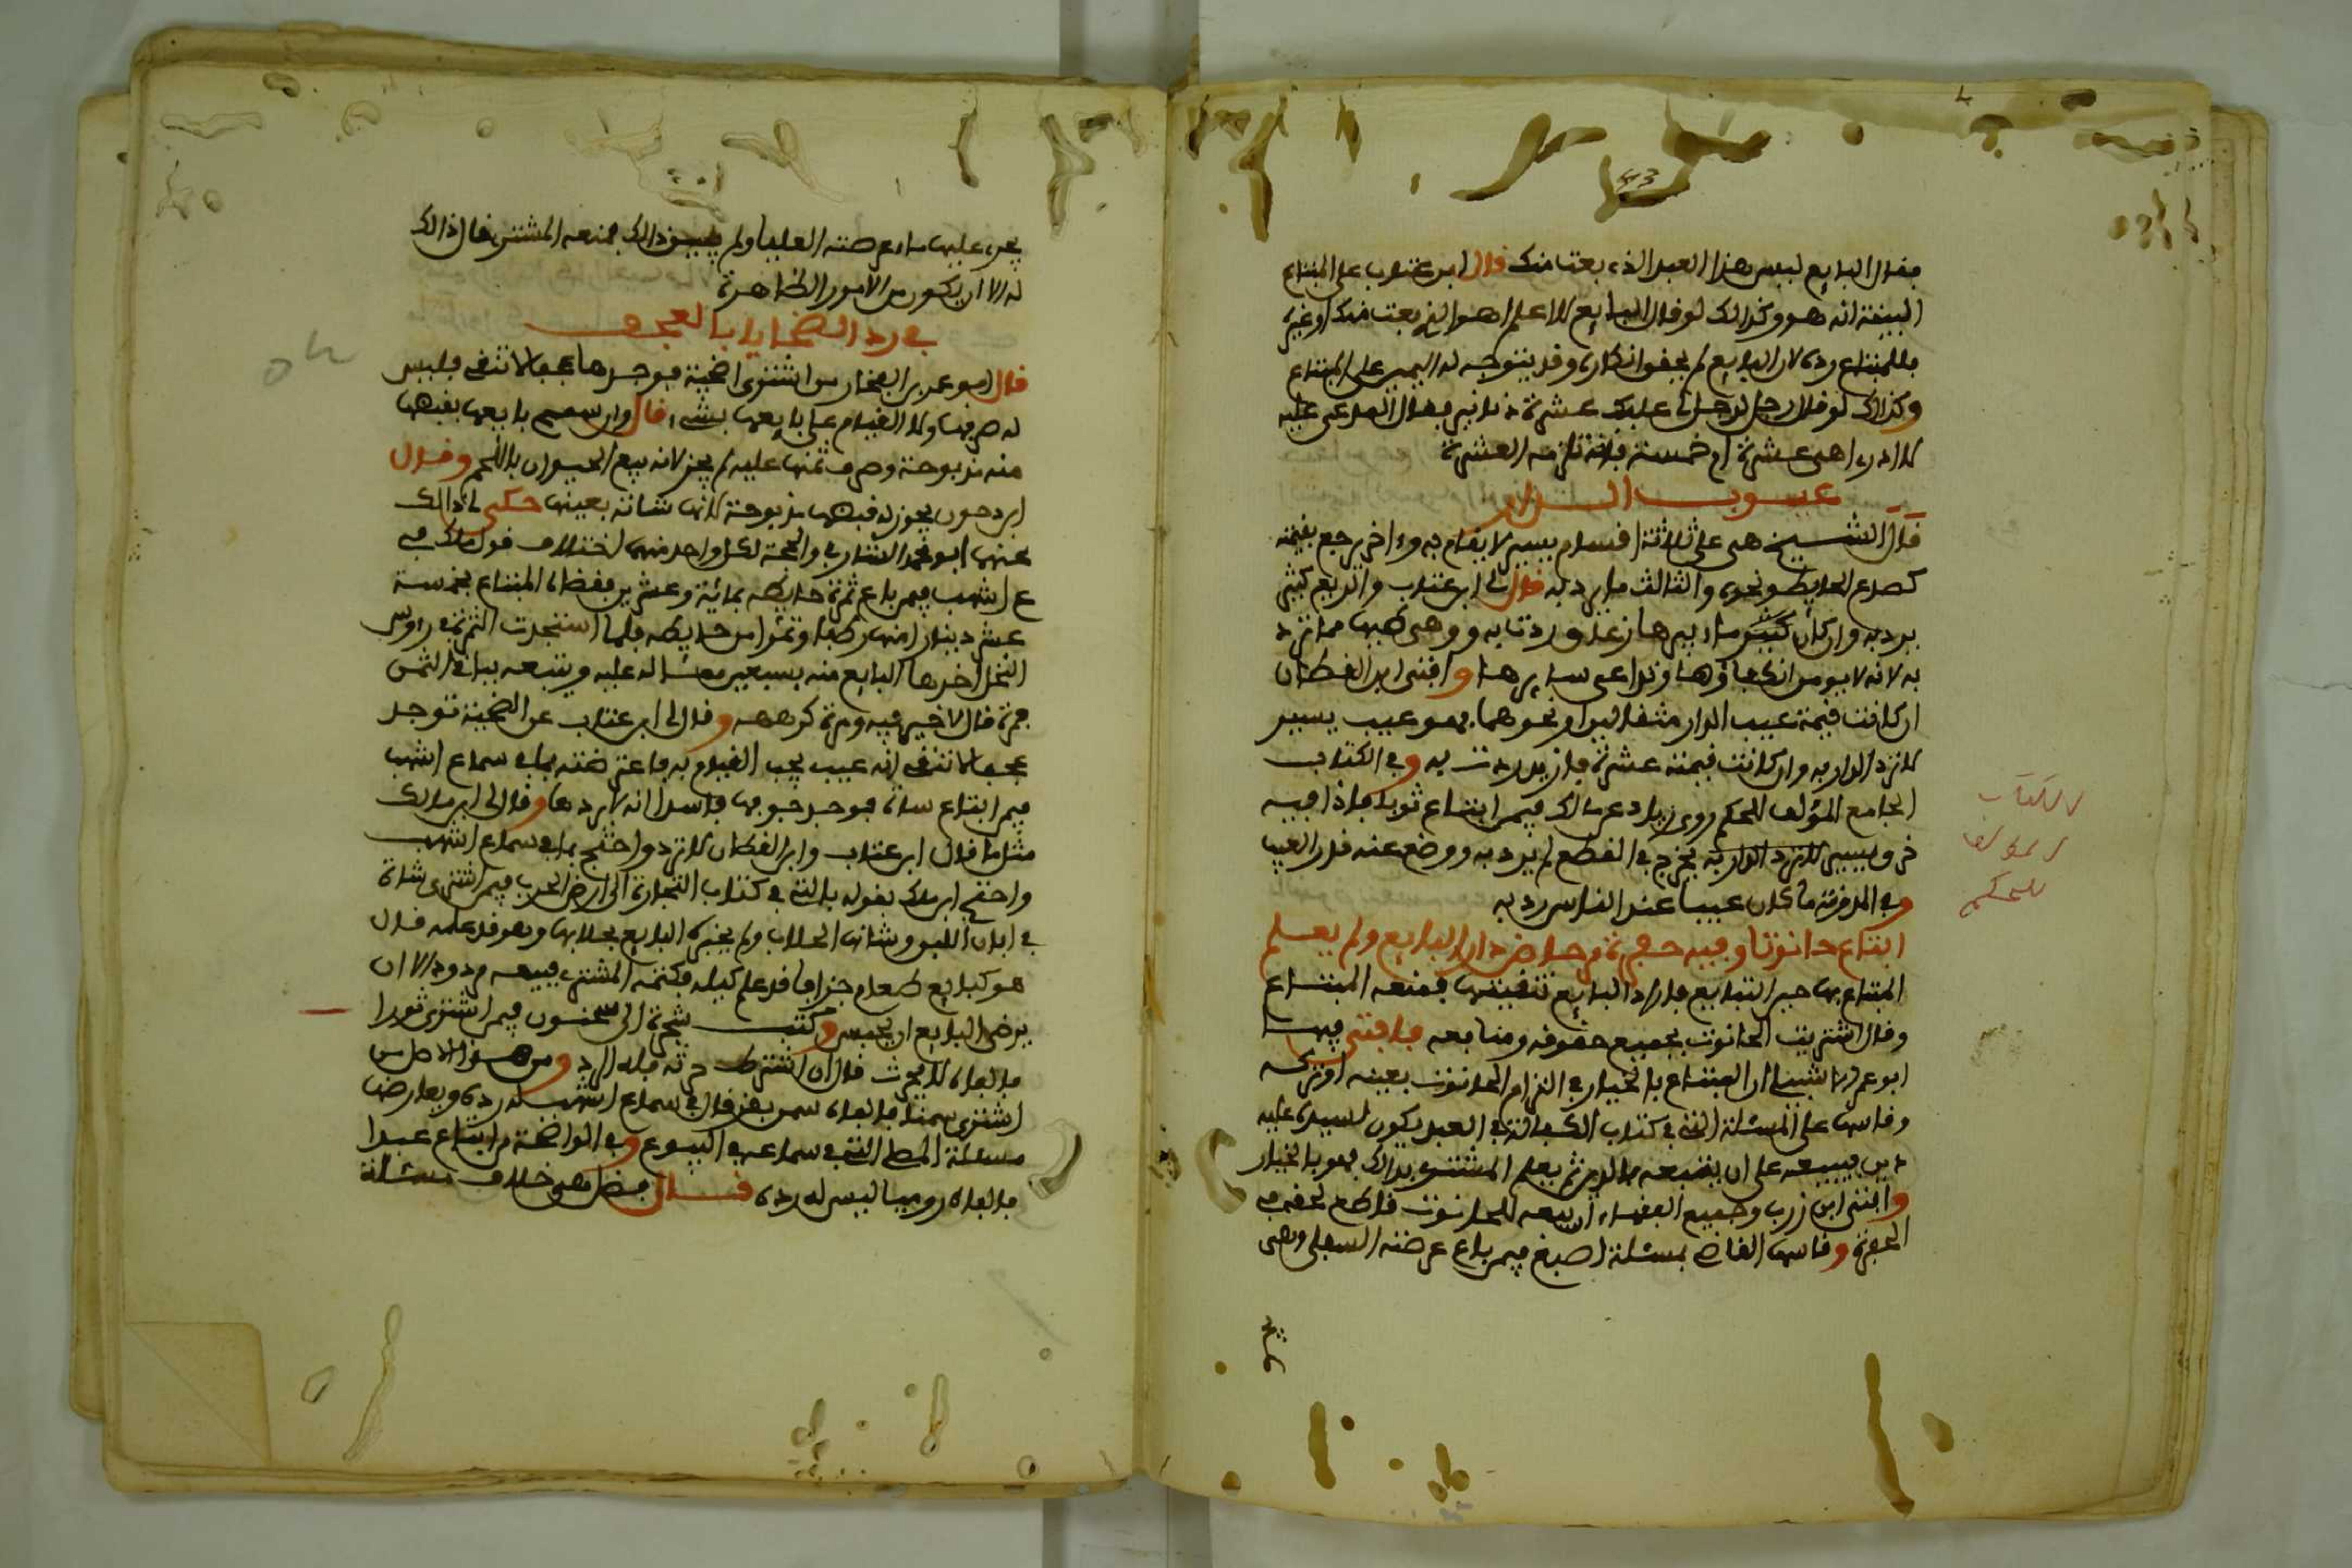 فقال البايع ليس هذا العبد الذي بعت منك قال ابن عتاب على المبتاع
البينة انه هو وكذلك لو قال البايع لا اعلم اهو الذي بعت منك او غيره
فللمبتاع رده لان البايع لم يحقق انكاره وقد يتوجه له اليمين على المبتاع
وكذلك لو قال رجل لرجل لي عليك عشرة دنانير فقال المدعى عليه
لا ادري اهي عشرة ام خمسة فانه تلزمه العشرة
عيوب الدار
قال الشيخ هي على ثلاثة اقسام يسير لا يقام به واخر يرجع بقيمته
كصدع الحايط ونحوه والثالث ما يرد به قال لي ابن عتاب والربع كبثر
يرد به وان كان
به لانه لا يومن وافتى ابن القطان
ان كانت قيمة عيب الدار مثقالين او نحوهما فهو عيب يسير
لا ترد الدار به وان كانت قيمته عشرة فازيد ردت به وفي الكتاب
الجامع المؤلف للحكم روى زياد عن مالك فيمن ابتاع ثوبا فاذا فيه
خرق يسير يخرج في القطع لم يرد به ووضع عنه قدر العيب
وفي المدونة ما كان عيبا عند الناس رد به
ابتاع حانوتا وفيه حجرة مرحاض دار البايع ولم يعلم
المبتاع بها حين التبايع فاراد البايع تنقيتها فمنعه المبتاع
وقال اشتريت الحانوت بجميع حقوقه ومنافعه فافتى فيها
ابو عمر الاشبيلي ان المبتاع بالخيار في التزام الحانوت بعيبه او تركه
وقاسها على المسئلة التي في كتاب الكفالة في العبد يكون لسيده عليه
دين فيبيعه على ان يتبعه بالدين ثم يعلم المشتري بذلك فهو بالخيار
وافتى ابن زرب وجميع الفقهاء ان بيعه للحانوت قاطع لحقه في
الحجرة وقاسها القاضي بمسئلة اصبغ فيمن باع عرصته السفلى وهي
يجري عليها ماء عرصته العليا ولم يبين ذلك فمنعه المشتري قال ذلك
له الا ان يكون من الامور الظاهرة
في رد الضحايا بالعجف
قال ابو عمر بن الفخار من اشترى اضحية فوجدها عجفا لا تنقي فليس
له صرفها ولا القيام على بايعها بشيء قال وان سمح بايعها بقبضها
منه مذبوحة وصرف ثمنها عليه لم يجز لانه بيع الحيوان باللحم وقال
ابن دحون يجوز له قبضها مذبوحة لانها شاته بعينها حكى لي ذلك
عنهما ابو محمد الشارفي والحجة لكل واحد منهما اختلاف قول ملك في
ع اشهب فيمن باع ثمرة حايطه بمائة وعشرين فقضاه المبتاع بخمسة
عشر دينارا منها رطبا وتمرا من حايطه فلما استجدت الثمرة في روس
النخل اخذها البايع منه بسبعين مما له عليه ويتبعه بباقي الثمن
فمرة قال لا خير فيه ومرة كرهه وقال لي ابن عتاب عن الضحية توجد
عجفا لا تنقي انه عيب يجب القيام به فاعترضته بما في سماع اشهب
فيمن ابتاع شاة فوجد جوفها فاسدا انه لا يردها وقال لي ابن مالك
مثل ما قال ابن عتاب وابن القطان لا ترد واحتج بما في سماع اشهب
واحتج ابن ملك بقوله بالتي في كتاب التجارة الى ارض الحرب فيمن اشترى شاة
في ابان اللبن وشانها الحلاب ولم يخبره البايع بحلابها وهو قد علمه قال
هو كبايع طعام جزافا قد علم كيله فكتمه المشتري فبيعه مردود الا ان
يرضى البايع ان يحبس وكتب شجرة الى سحنون فيمن اشترى ثورا
فالفاه لا يحرث قال ان اشترط حرثه فله الرد ومن هذا الاصل من
اشترى سمنا فالفاه سمن بقر قال في سماع اشهب له رده ويعارض
مسئلة التي في سماعه في البيوع وفي الواضحة من ابتاع عبدا
فالفاه روميا ليس له رده قال فضل وهي خلاف مسئلة
43
الكتاب
المؤلف
للحكم